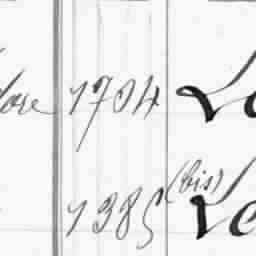 dore 1704 Le
1385 (bis) Le